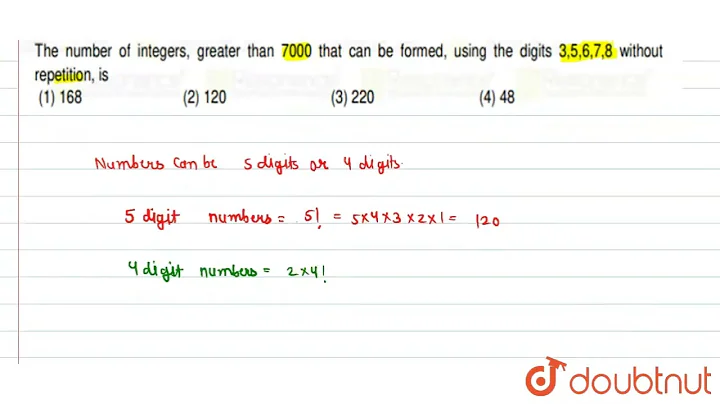 The number of integers, greater than 7000 that can be formed, using the digits 3,5,6,7,8 without
repetition, is
(1) 168 (2) 120 (3) 220 (4) 48
Numbers can be 5 digits or 4 digits.
5 digit numbers = 5! = 5×4×3×2×1 = 120
4 digit numbers = 2×4!
doubtnut